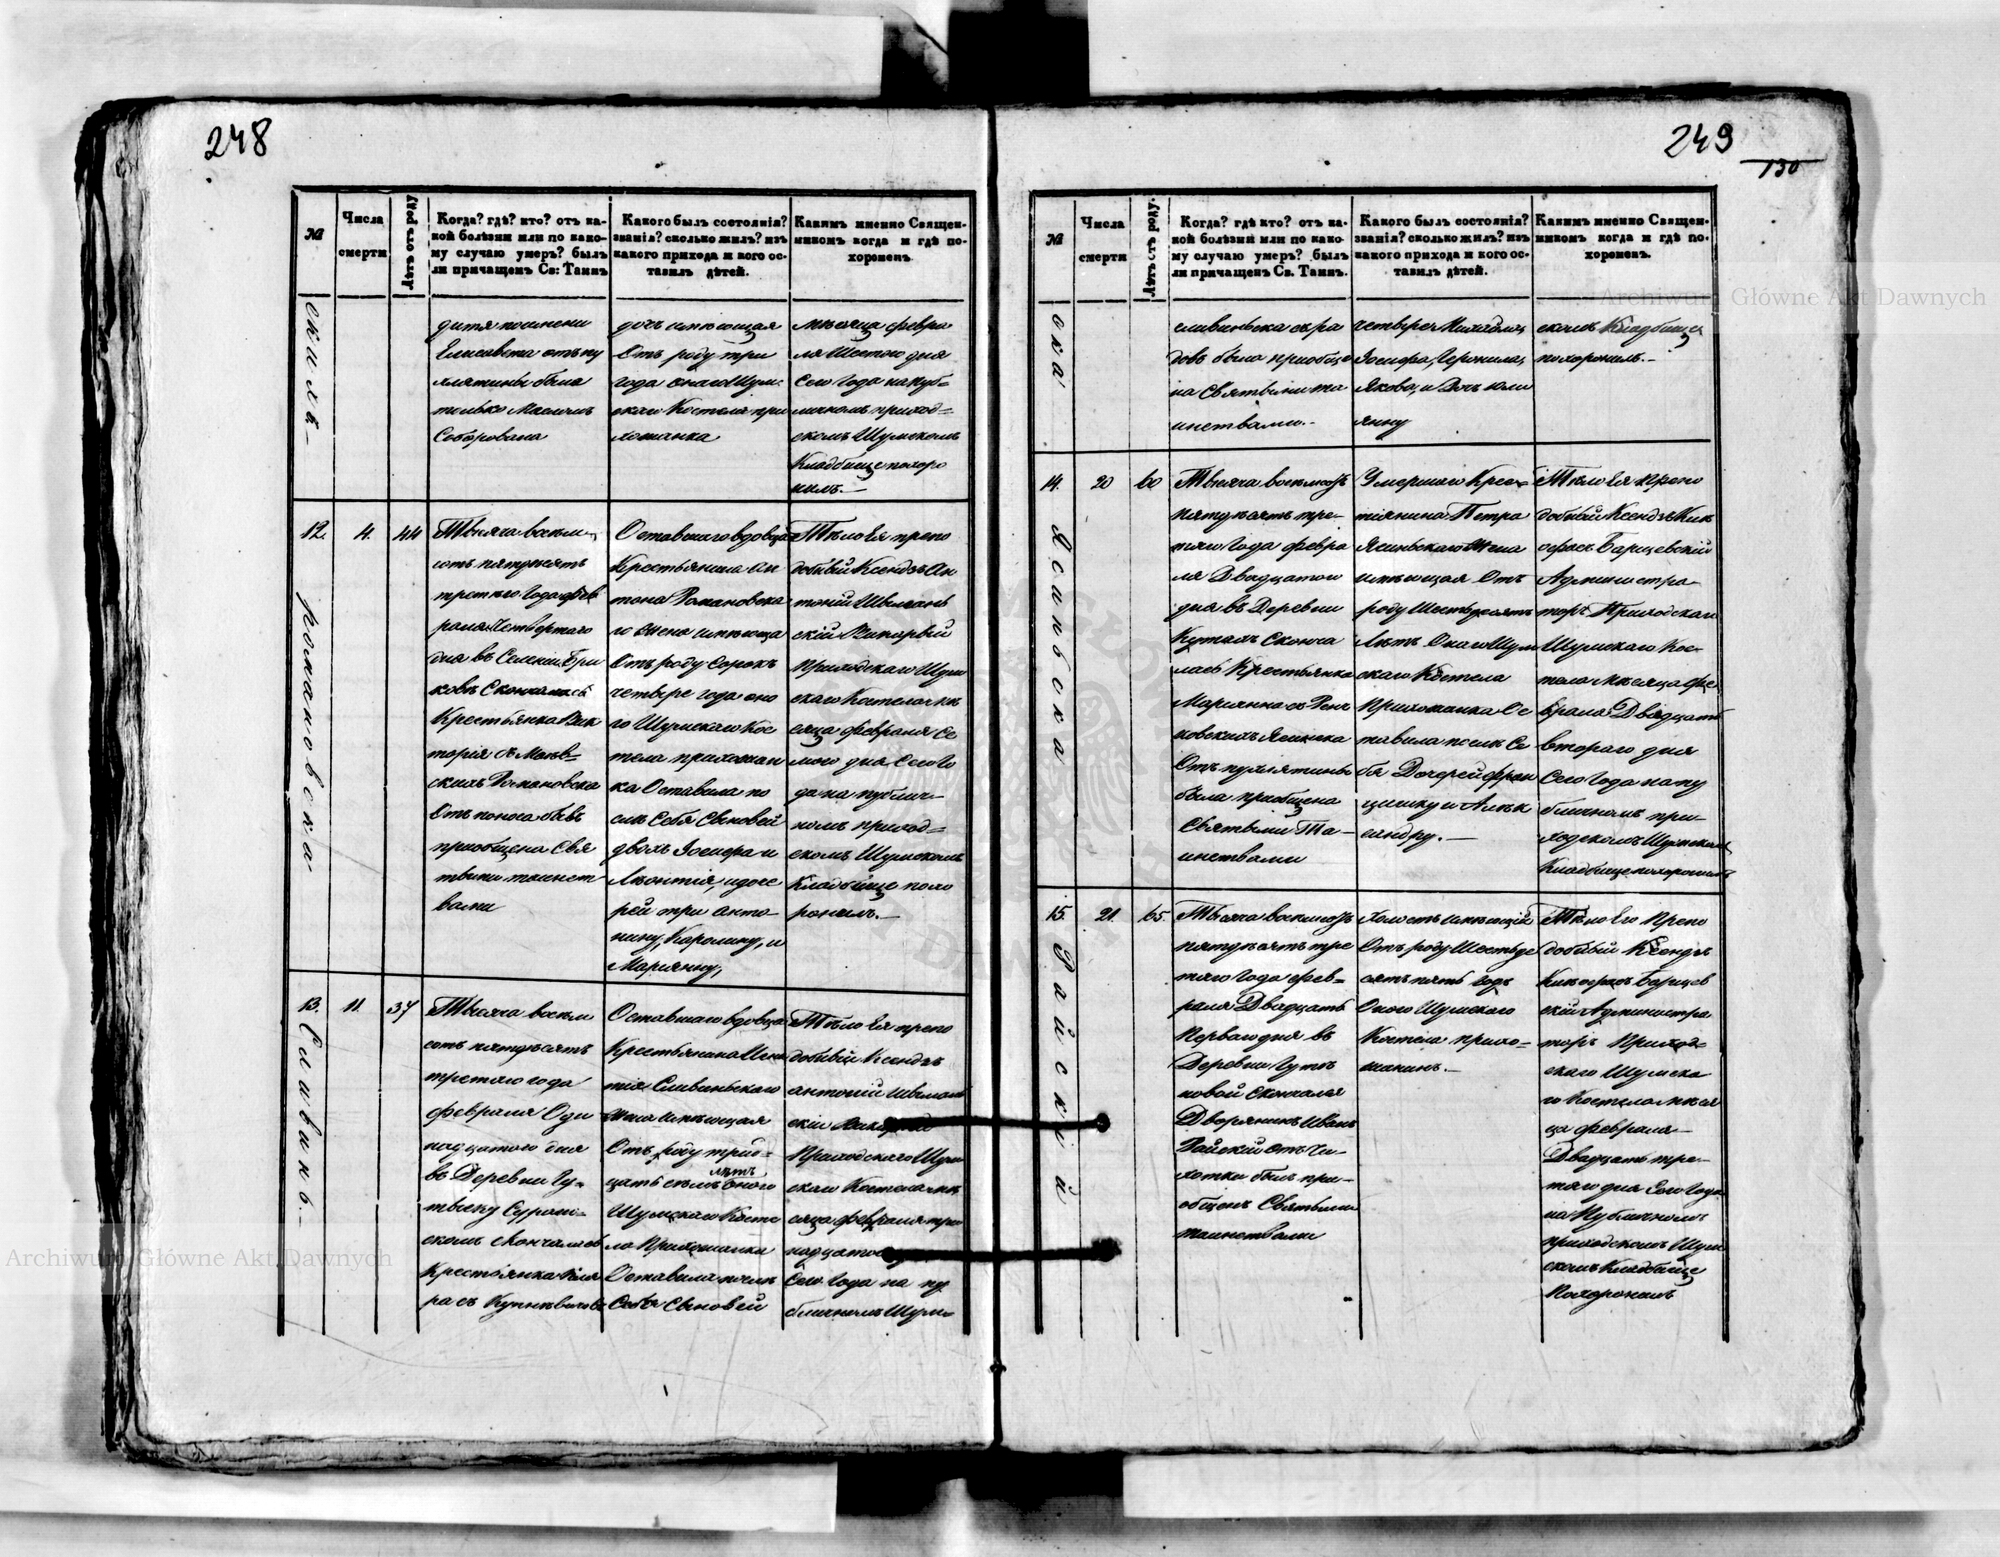 248
№
Числа
смерти
Лѣтъ отъ роду
Когда? гдѣ? кто? отъ ка-
кой болѣзни или по како-
му случаю умеръ? былъ
ли причащенъ Св: Таинъ
Какого былъ состоянія?
званія? сколько жилъ? изъ
какого прихода и кого ос-
тавилъ дѣтей.
Какимъ именно Священ-
никомъ когда и гдѣ по-
хороненъ
скихъ
дитя по имени
Елисавета отъ пу
хлятины была
только Маслом
Соборована
дочь имѣющая
Отъ роду три
года онаго Шум
скаго Костела при
хожанка
мѣсяца февра
ля Шестого дня
Сего Года на пуб-
личномъ приход=
скомъ Шумскомъ
Кладбище похоро
нилъ.—
12.
4.
44
Романовска
Тысяча восьм
сотъ пятдесятъ
третьго Года фев
раля Четвертаго
дня въ Селеніи Бри
ковъ Скончалась
Крестьянка Вик
торія съ
скихъ Романовска
Отъ поноса бывъ
приобщена Свя
тыми таинст
вами
Оставшаго вдовца
Крестьянина Ан
тона Романовска
го жена имѣюща
Отъ роду Сорокъ
четыре года она
го Шумскаго Кос
тела прихожан
ка Оставила по
слѣ Себя Сыновей
двохъ Іосифа и
Лѣонтія, и доче
рей три Анто-
нину, Каролину, и
Маріянну,
Тѣло Ея препо
добный Ксендзъ Ан
тоній Швыкань
скій Викарный
приходскаго Шум
скаго Костела мѣ
сяца февраля Се
мого дня Сего Го
да на публич-
номъ приход=
скомъ Шумскомъ
Кладбище похо
ронилъ.—
13.
11.
37
Сливинь-
Тысяча восьм
сотъ пятдесятъ
третяго года
февраля Оди
надцатого дня
въ Деревни Гу-
скомъ скончалась
Крестьянка Кла
ра съ
Оставшаго вдовца
Крестьянина Игна
тія Сливиньскаго
жена имѣющая
Отъ роду трид=
лѣтъ
цать семь оного
Шумскаго Косте
ла Прихожанка
Оставила послѣ
Себя Сыновей
Тѣло Ея препо
добный Ксендзъ
антоній Швыкань
скій Викарный
Приходскаго Шум
скаго Костела мѣ
сяца февраля три
надцатого
Сего Года на пу
бличномъ Шум-
249
130
№
Числа
смерти
Лѣтъ отъ роду.
Когда? гдѣ кто? отъ ка-
кой болѣзни или по како-
му случаю умеръ? былъ
ли причащенъ Св. Таинъ.
Какого былъ состоянія?
званія? сколько жилъ? изъ
какого прихода и кого ос-
тавилъ дѣтей.
Какимъ именно Священ-
никомъ когда и гдѣ по-
хороненъ.
ска
сливиньска съ ра
довъ была приобще
на Святыми та
инствами.-
четыре Михайла,
Іосифа, Геронима,
Якова, и Дочь Юли
янну
скомъ Кладбище
похоронилъ.-
14.
20
60
Ясаньска
Тысяча восьмсотъ
пятдесятъ тре-
тяго Года февра
ля Двадцатого
дня въ Деревни
Кутахъ Сконча
лась Крестьянка
Маріянна съ
новскихъ
Отъ пухлятины
была приобщена
Святыми Та-
инствами
Умершаго Кресть
тіянина Петра
жена
имѣющая Отъ
роду Шестьдесятъ
Лѣтъ Онаго Шум
скаго Костела
Прихожанка Ос
тавила послѣ Се
бя Дочерей Фран
цишку и Алѣк
сандру.—
Тѣло Ея Препо
добный Ксендзъ Ник
ифоръ Барщевскій
Администра-
торъ Приходскаго
Шумскаго Кос-
тела мѣсяца фе
враля Двадцать
втораго дня
Сего Года на пу
бличномъ при-
ходскомъ Шумскомъ
Кладбище похоронилъ
15.
21.
65.
Райскій
Тысяча восьмсотъ
пятдесятъ тре
тяго Года фев-
раля Двадцать
Первого дня въ
Деревни Гутъ
новой скончался
Дворянинъ Иванъ
Райскій отъ Чи-
хотки былъ при-
общенъ Святыми
таинствами
Холостъ имѣющій
Отъ роду Шестьде
сятъ пять Годъ
Оного Шумскаго
Костела прихо-
жанинъ.—
Тѣло Его Препо
добный Ксендзъ
Барщев
скій Администра
торъ Приход-
скаго Шумска
го Костела мѣся
ца февраля
Двадцать тре-
тяго дня Сего Года
на Публичномъ
приходскомъ Шум
скомъ Кладбище
Похоронилъ
Archiwum Główne Akt Dawnych
Archiwum Główne Akt Dawnych